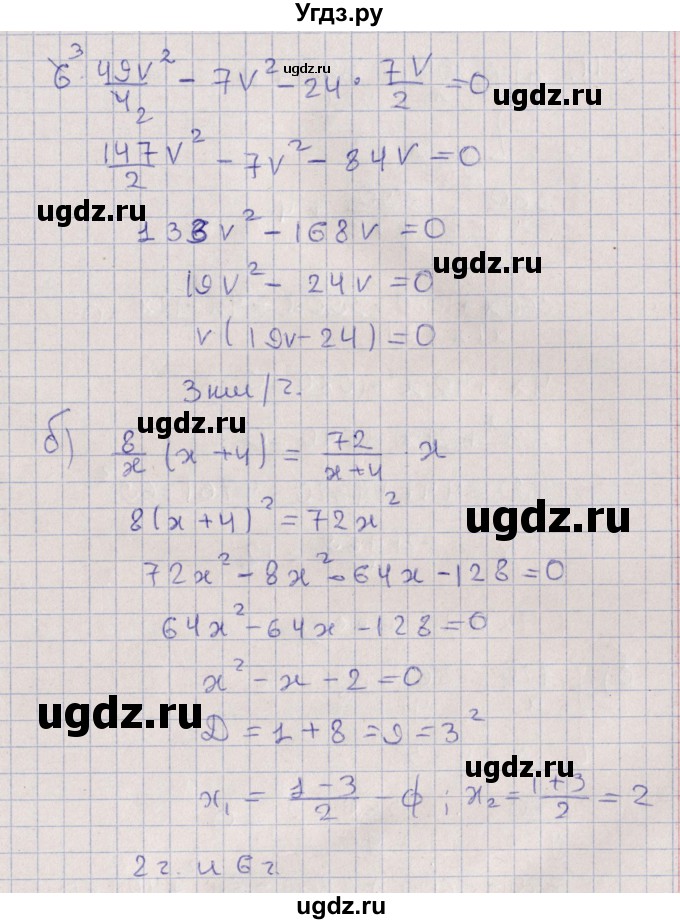 Угдз.ру
6³ · 49v²/4₂ − 7v² − 24 · 7v/2 = 0
ugdz.ru
ugdz.ru
147/2 v² − 7v² − 84v = 0
ugdz.ru
133v² − 168v = 0
ugdz.ru
19v² − 24v = 0
v(19v − 24) = 0
3 км/ч.
ugdz.ru
б) 8/x · (x + 4) = 72/(x + 4) · x
8(x + 4)² = 72x²
ugdz.ru
72x² − 8x² − 64x − 128 = 0
64x² − 64x − 128 = 0
x² − x − 2 = 0
ugdz.ru
Д = 1 + 8 = 9 = 3²
ugdz.ru
x₁ = (1 − 3)/2 − ф; x₂ = (1 + 3)/2 = 2
2 г. и 6 г.
ugdz.ru
ugdz.ru